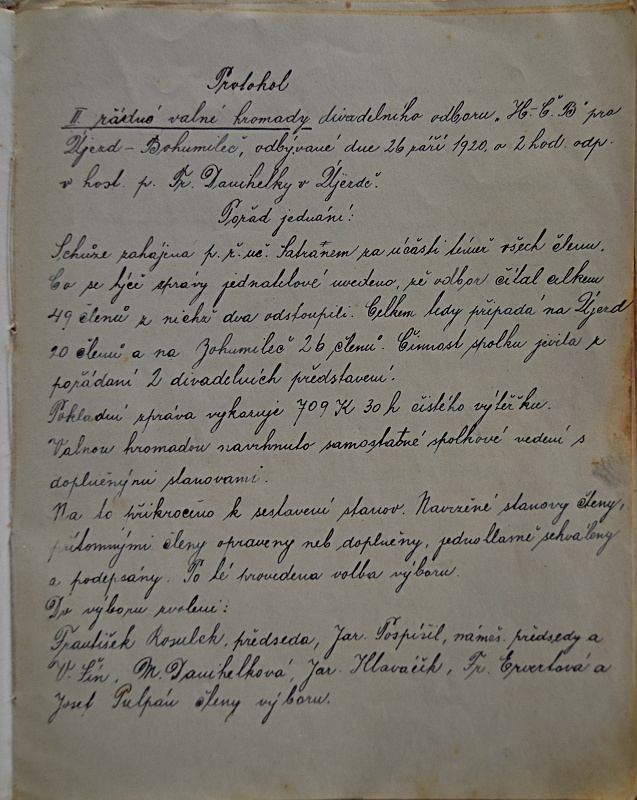 Protokol
II. řádné valné hromady divadelního odboru „H-Č-B" pro
Újezd - Bohumileč, odbývané dne 26 září 1920. o 2 hod. odp.
v host. p. Fr. Danihelky v Újezdě.
Pořad jednání:
Schůze zahájena p. ř. uč. Satranem za účasti téměř všech členu.
Co se týče správy jednatelové uvedeno, zě odbor čítal celkem
49 členů z nichž dva odstoupili. Celkem tedy připadá na Újezd
20 členů a na Bohumileč 26 členů. Činnost spolku jivila z
pořádaní 2 divadelních představení.
Pokladní zpráva vykazuje 709 K 30 h čistého výtěžku.
Valnou hromadou navrhnuto samostatné spolkové vedení s
doplněnými stanovami.
Na to přikročeno k sestavení stanov. Navržené stanovy členy,
přítomnými členy opraveny neb doplněny, jednohlasně schváleny
a podepsány. Po té provedena volba výboru.
Do výboru zvoleni:
František Rosulek, předseda, Jar. Pospíšil, náměs. předsedy a
V. Šín, M. Danihelková, Jar. Hlaváček, Fr. Ervertová a
Josef Pulpán členy výboru.